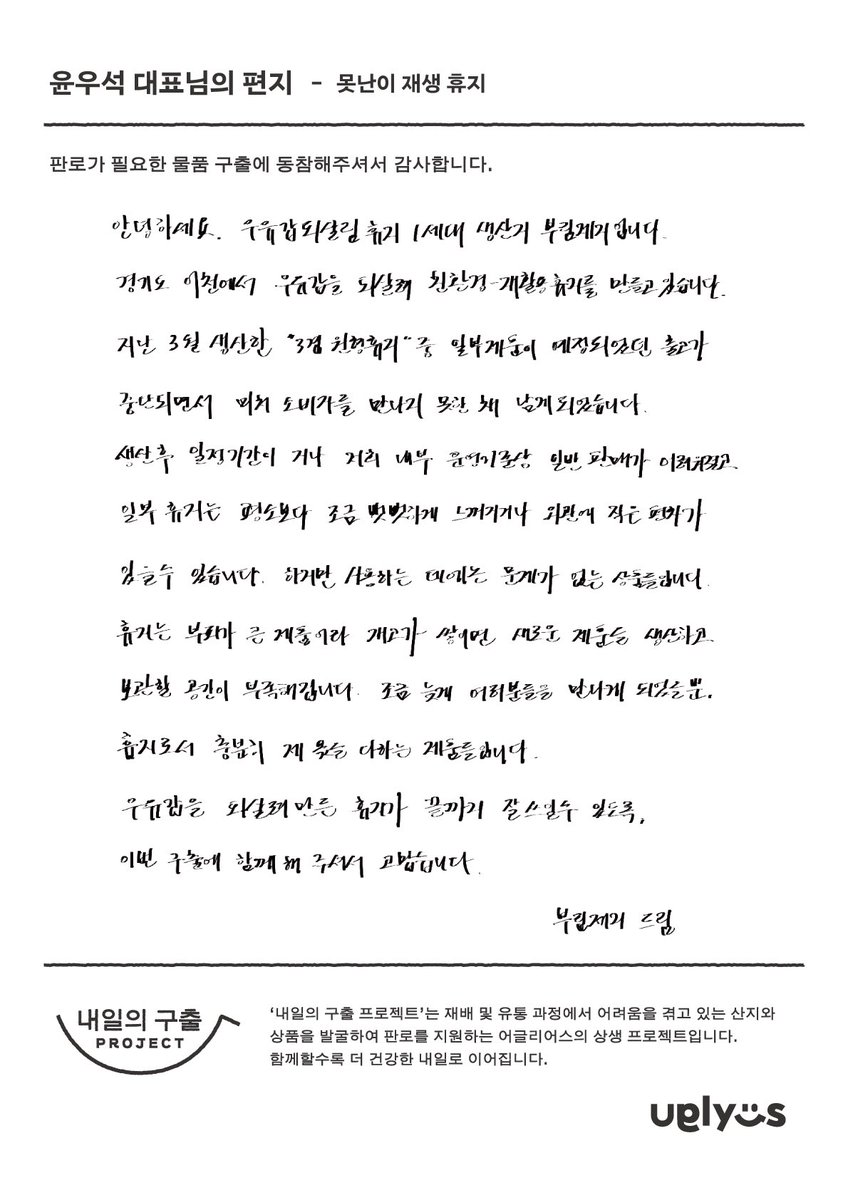 윤우석 대표님의 편지 - 못난이 재생 휴지
판로가 필요한 물품 구출에 동참해주셔서 감사합니다.
안녕하세요. 우유갑 되살림 휴지 1세대 생산지 부림제지입니다.
경기도 이천에서 우유갑을 되살려 친환경 재활용휴지를 만들고 있습니다.
지난 3월 생산한 "3겹 천형휴지" 중 일부제품이 예정되었던 출고가
중단되면서 미처 소비자를 만나지 못한 채 남게되었습니다.
생산후 일정기간이 지나 저희 내부 운영기준상 일반 판매가 어려워졌고
일부 휴지는 평소보다 조금 뻣뻣하게 느껴지거나 외관에 작은 변화가
있을수 있습니다. 하지만 사용하는 데에는 문제가 없는 상품들입니다.
휴지는 부피가 큰 제품이라 재고가 쌓이면 새로운 제품을 생산하고
보관할 공간이 부족해집니다. 조금 늦게 여러분들을 만나게 되었을뿐,
휴지로서 충분히 제 몫을 다하는 제품들입니다.
우유갑을 되살려 만든 휴지가 끝까지 잘 쓰일수 있도록,
이번 구출에 함께 해 주셔서 고맙습니다.
부림제지 드림
내일의 구출
PROJECT
'내일의 구출 프로젝트'는 재배 및 유통 과정에서 어려움을 겪고 있는 산지와
상품을 발굴하여 판로를 지원하는 어글리어스의 상생 프로젝트입니다.
함께할수록 더 건강한 내일로 이어집니다.
uglyus